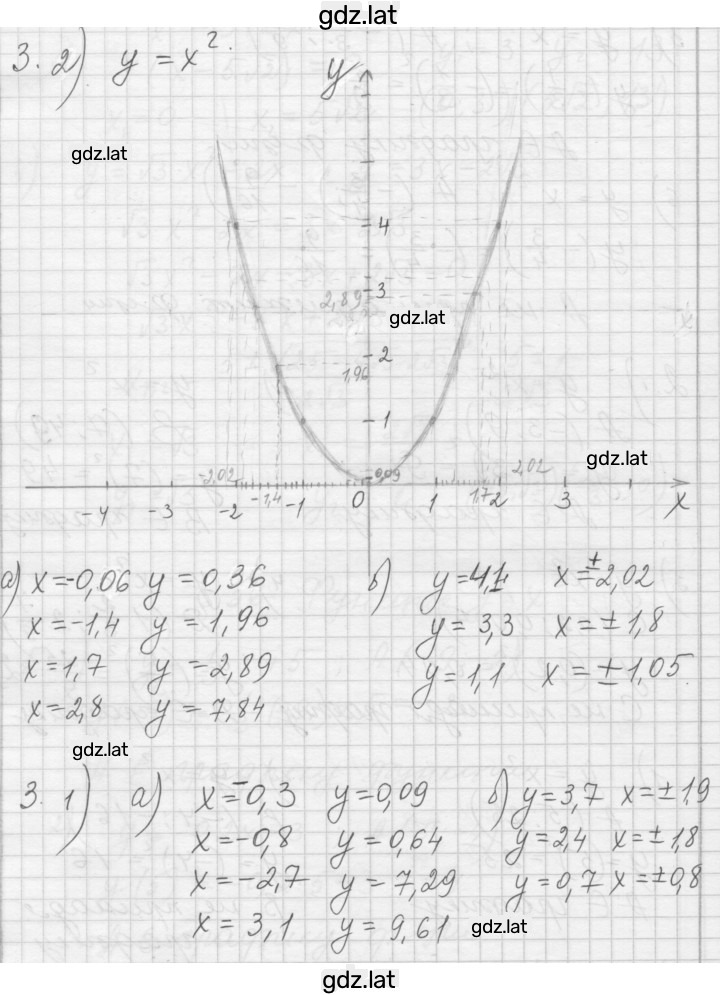 gdz.lat
3.2) y = x².
y
gdz.lat
4
3
2,89
gdz.lat
2
1,96
1
0,09
-2,02 2,02
gdz.lat
-4 -3 -2 -1,4 -1 0 1 1,7 2 3 x
а) x=-0,06 y = 0,36 б) y=4,1 x=±2,02
x=-1,4 y = 1,96 y = 3,3 x = ±1,8
x=1,7 y = 2,89 y = 1,1 x = ±1,05
x=2,8 y = 7,84
gdz.lat
3. 1) а) x=-0,3 y=0,09 б) y=3,7 x=±1,9
x=-0,8 y = 0,64 y=2,4 x=±1,8
x=-2,7 y = 7,29 y=0,7 x=±0,8
x = 3,1 y = 9,61
gdz.lat
gdz.lat